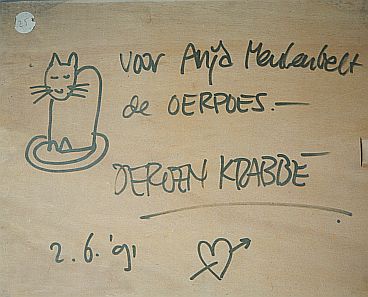 25
voor Anja Meulenbelt
de OERPOES.—
JEROEN KRABBÉ
2.6.'91